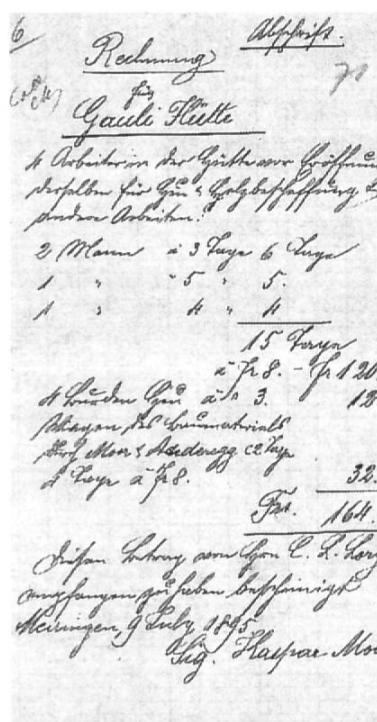 6
Abschrift.
Rechnung
für
70
Gauli Hütte
4 Arbeiter in der Hütte vor Eröffnun
derselben für Heu & Holzbeschaffung &
andere Arbeiten:
2 Mann à 3 Tage 6 Tage
1 " " 5 " 5.
1 " 4 " 4
15 Tage
à Fr 8. – Fr 120
4 Burden Heu à " 3. 12
Tragen des Baumaterials
durch Moor & Anderegg à 2 Tage
4 Tage à Fr 8. 32.
Fr. 164.
Diesen Betrag von Hrn C. L.
empfangen zu haben bescheinigt
Meiringen, 9 July 1895
Sig. Kaspar Moo